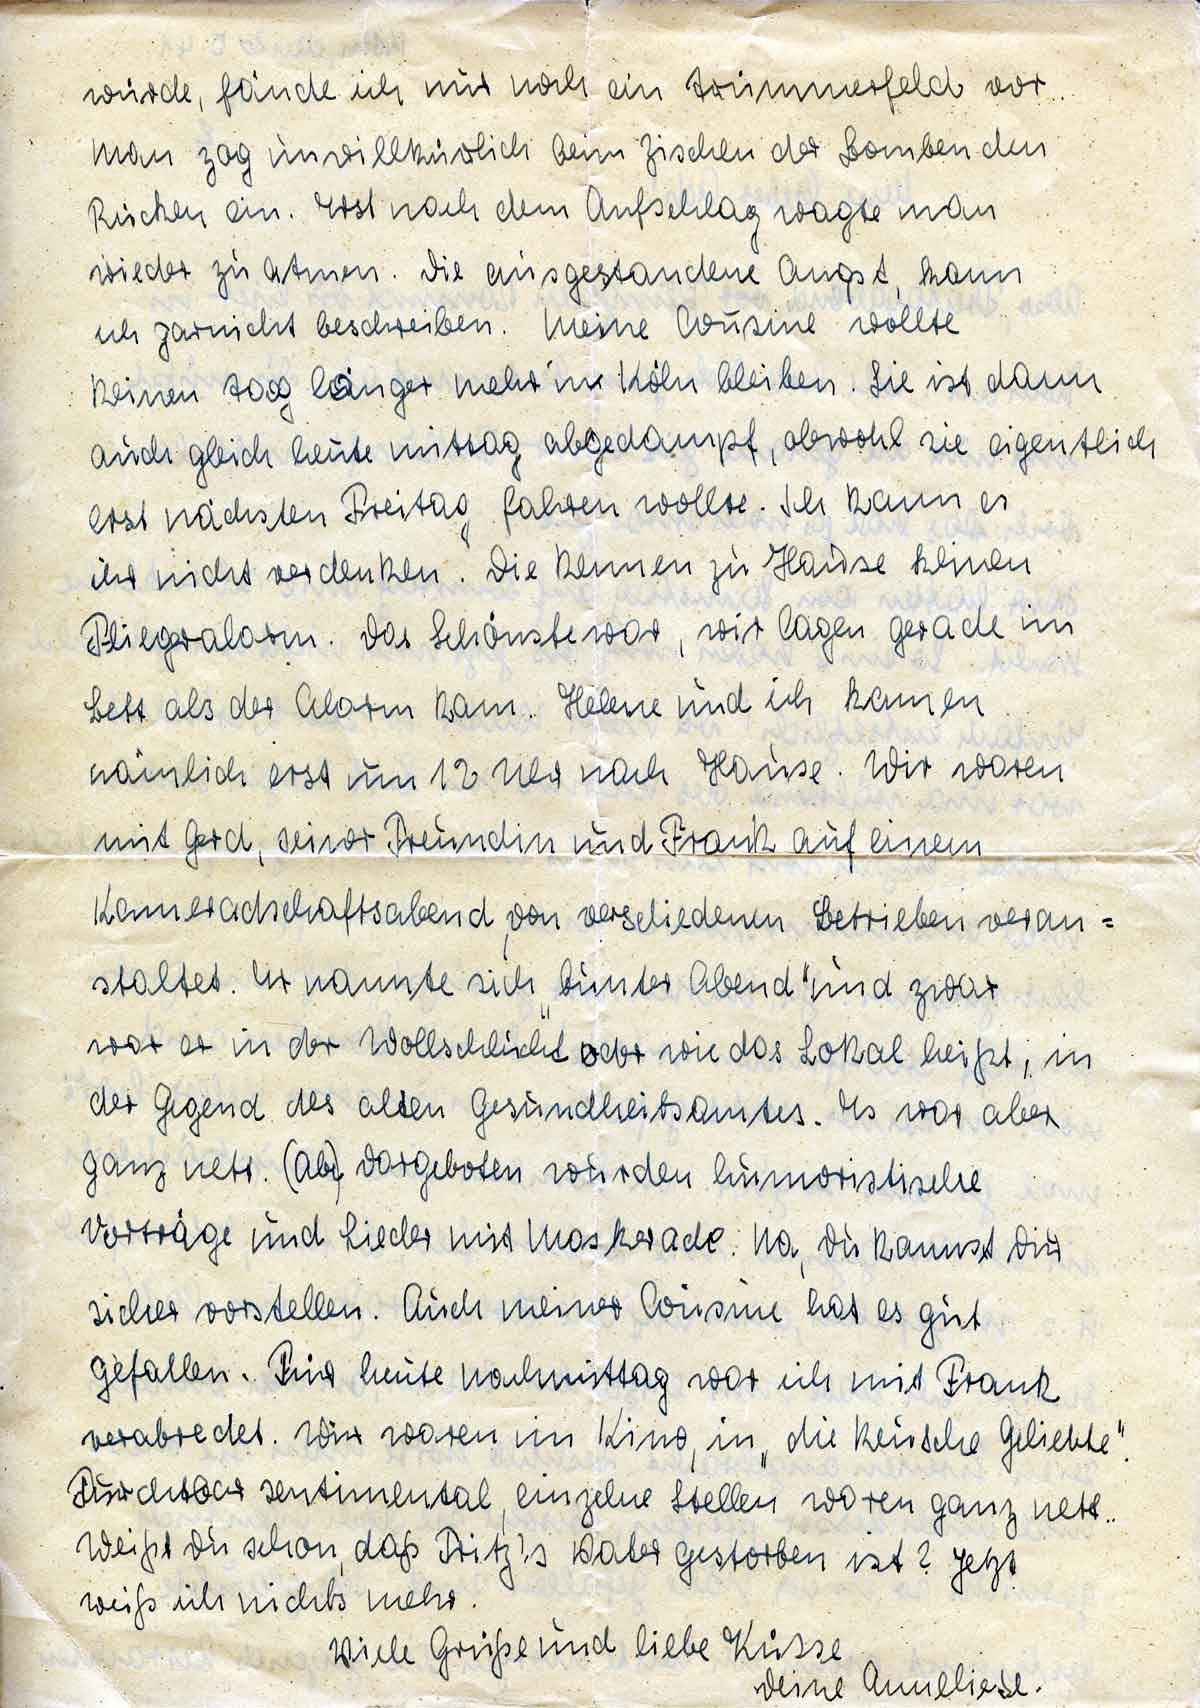 würde, fände ich nur noch ein Trümmerfeld vor.
Man zog unwillkürlich beim Zischen der Bomben den
Rücken ein. Erst nach dem Aufschlag wagte man
wieder zu atmen. Die ausgestandene Angst, kann
ich garnicht beschreiben. Meine Cousine wollte
keinen Tag länger mehr in Köln bleiben. Sie ist dann
auch gleich heute mittag abgedampf, obwohl sie eigentlich
erst nächsten Freitag fahren wollte. Ich kann es
ihr nicht verdenken. Die kennen zu Hause keinen
Fliegeralarm. Das Schönste war, wir lagen gerade im
Bett als der Alarm kam. Helene und ich kamen
nämlich erst um 12 Uhr nach Hause. Wir waren
mit Gerd, seiner Freundin und Frank auf einem
Kameradschaftsabend, von verschiedenen Betrieben veran=
staltet. Er nannte sich „bunter Abend" und zwar
war er in der oder wie das Lokal heißt, in
der Gegend des alten Gesundheitsamtes. Es war aber
ganz nett. (Ab) Dargeboten wurden humoristische
Vorträge und Lieder mit Maskerade. Na, Du kannst Dir
sicher vorstellen. Auch meiner Cousine hat es gut
gefallen. Für heute nachmittag war ich mit Frank
verabredet. Wir waren im Kino, in „die keusche Geliebte".
Furchtbar sentimental, einzelne Stellen waren ganz nett..
Weißt Du schon, daß Fritz's Vater gestorben ist? Jetzt
weiß ich nichts mehr.
Viele Grüße und liebe Küsse
Deine Anneliese.